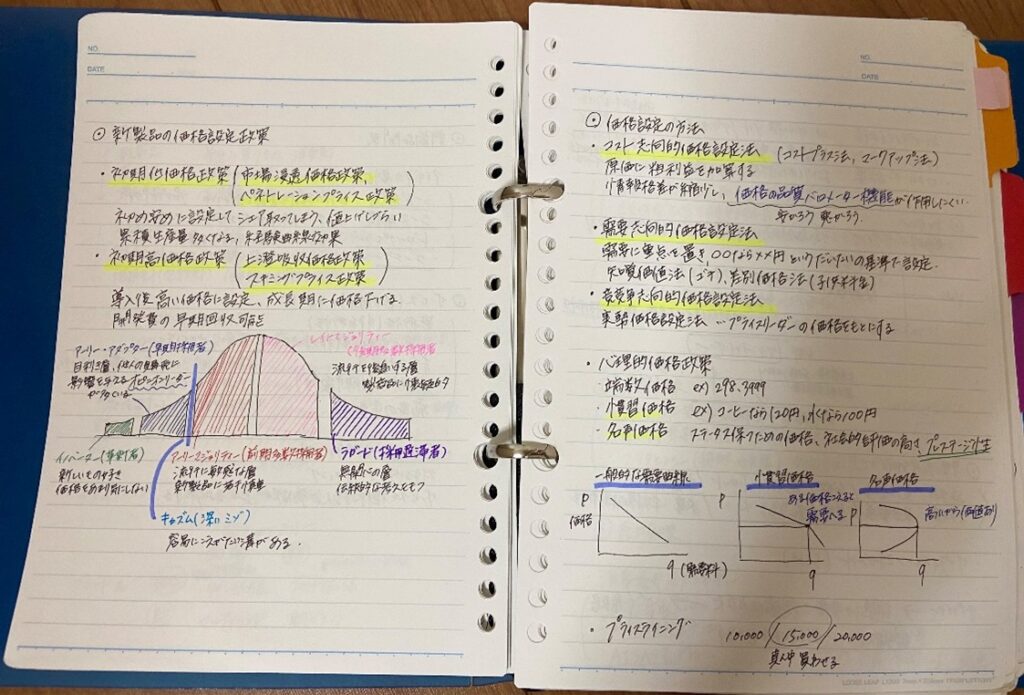 NO.
DATE
◎ 新製品の価格設定政策
・初期低価格政策（市場浸透価格政策、
ペネトレーションプライス政策）
初め安めに設定してシェア取ってしまう、値上げしづらい
累積生産量多くなる、経験曲線効果
・初期高価格政策（上澄吸収価格政策
スキミングプライス政策）
導入後高い価格に設定、成長期に価格下げる
開発費の早期回収可能
アーリー・アダプター（早期採用者）
目利き層、他人の
影響を与えるオピニオンリーダー
が多くいる
レイトマジョリティー
流行を
イノベーター（革新者）
新しいもの好き
価格をあまり気にしない
アーリーマジョリティー（前期多数採用者）
流行に敏感な層
新製品には
ラガード（採用遅滞者）
無関心の層
伝統的な考えをもつ
キャズム（深いミゾ）
容易にこえがたい溝がある。
NO.
DATE
◎ 価格設定の方法
・コスト志向的価格設定法（コストプラス法、マークアップ法）
原価に粗利益を加算する
価格の品質バロメーター機能が作用しにくい
安かろう 悪かろう
・需要志向的価格設定法
需要に重点を置き、〇〇なら××円というだいたいの基準で設定
知覚価値法（ゴチ）、差別価格法（子供半額）
・競争志向的価格設定法
実勢価格設定法 … プライスリーダーの価格をもとにする
・心理的価格政策
・端数価格 ex) 298.3999
・慣習価格 ex) コーヒーなら120円、水なら100円
・名声価格 ステータス保つための価格、社会的評価の高さ、プレステージ性
一般的な需要曲線
P
価格
q（需要料）
慣習価格
ある価格こえると
需要へる
P
q
名声価格
P
高いから価値あり
q
・プライスライニング 10,000 / 15,000 / 20,000
真ん中 買わせる
LOOSE LEAF maruman